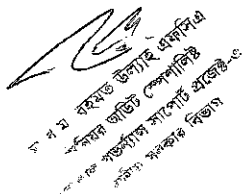 রহমত উল্যাহ এফসিএ
সিনিয়র অডিট স্পেশালিষ্ট
গভর্ন্যান্স সাপোর্ট প্রজেক্ট-৩
সরকার বিভাগ